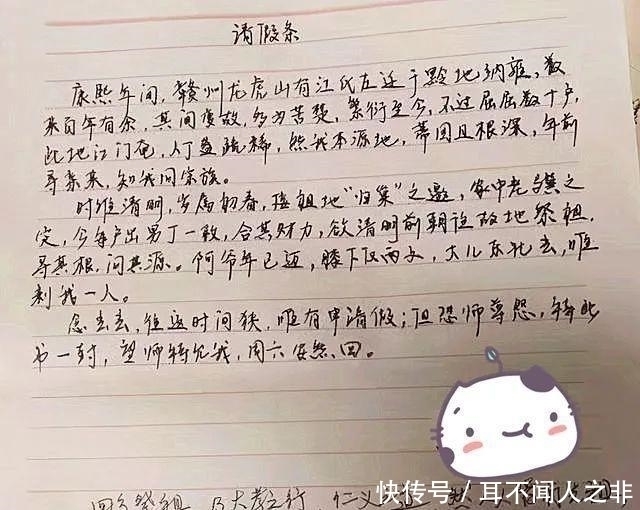 请假条
康熙年间，赣州龙虎山有江氏左迁于黔地纳雍，数
来百年有余，其间变故，多为苦楚，繁衍至今，不过屈屈数十户，
此地江门奄，人丁益疏稀，然我本源地，蒂固且根深，年前
寻亲来，知我同宗族。
时维清明，岁属初春，接祖地“归集”之邀，家中老
定，今每户出男丁一数，合其财力，欲清明前朝往故地祭祖，
寻其根，问其源。阿爷年已迈，膝下仅两子，大儿东北去，唯
剩我一人。
念去去，往返时间狭，唯有申请假；但恐师尊怨，特此
书一封，望师特允我，周六安然回。
回乡祭祖，乃大孝之行，仁义
快传号／耳不闻人之非